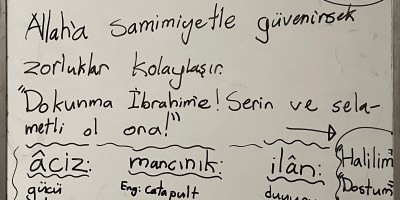 Allah'a samimiyetle güvenirsek
zorluklar kolaylaşır.
"Dokunma İbrahime! Serin ve sela-
metli ol ona!"
âciz: mancınık: ilân: "Halilim"
gücü Eng: catapult "Dostum"